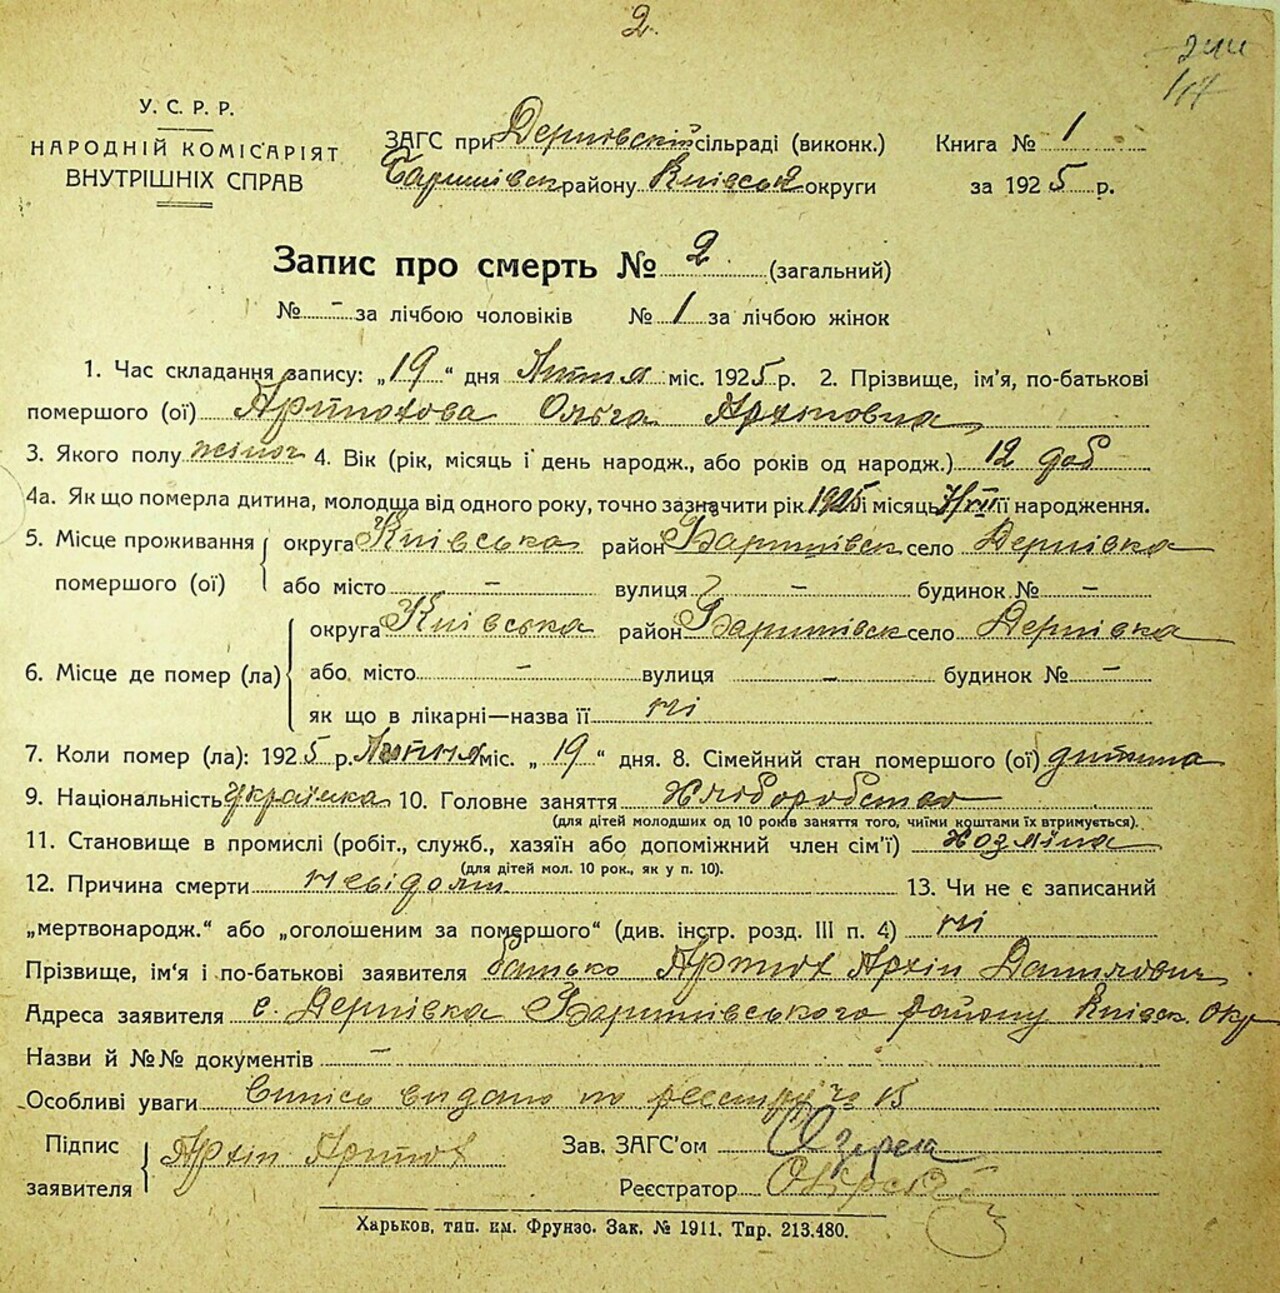 2.
У. С. Р. Р.
НАРОДНІЙ КОМІСАРІЯТ
ВНУТРІШНІХ СПРАВ
ЗАГС при Дернівській сільраді (виконк.) Книга № 1
Баришівськ району Київської округи за 1925 р.
Запис про смерть № 2 (загальний)
№ - за лічбою чоловіків № 1 за лічбою жінок
1. Час складання запису: „19“ дня Липня міс. 1925 р. 2. Прізвище, ім'я, по-батькові
помершого (ої) Ольга Архіповна
3. Якого полу жіноч 4. Вік (рік, місяць і день народж., або років од народж.) 12 доб
4а. Як що померла дитина, молодша від одного року, точно зазначити рік 1925 і місяць її народження.
5. Місце проживання помершого (ої) округа Київська район Баришівськ село Дернівка
або місто - вулиця - будинок № -
6. Місце де помер (ла) округа Київська район Баришівськ село Дернівка
або місто - вулиця - будинок № -
як що в лікарні—назва її ні
7. Коли помер (ла): 1925 р. Липня міс. „19“ дня. 8. Сімейний стан помершого (ої) дитина
9. Національність Українка 10. Головне заняття Хліборобство
(для дітей молодших од 10 років заняття того, чиїми коштами їх втримується).
11. Становище в промислі (робіт., служб., хазяїн або допоміжний член сім'ї) Хозяїна
(для дітей мол. 10 рок., як у п. 10).
12. Причина смерти невідом 13. Чи не є записаний
„мертвонародж.“ або „оголошеним за помершого“ (див. інстр. розд. III п. 4) ні
Прізвище, ім'я і по-батькові заявителя батько Артюх Архіп Данилович
Адреса заявителя с. Дернівка Баришівського району Київськ. Окр
Назви й №№ документів -
Особливі уваги Випись видано по реєстру № 15
Підпис заявителя Архіп Артюх
Зав. ЗАГС'ом
Реєстратор
Харьков, тип. им. Фрунзо. Зак. № 1911. Тир. 213.480.